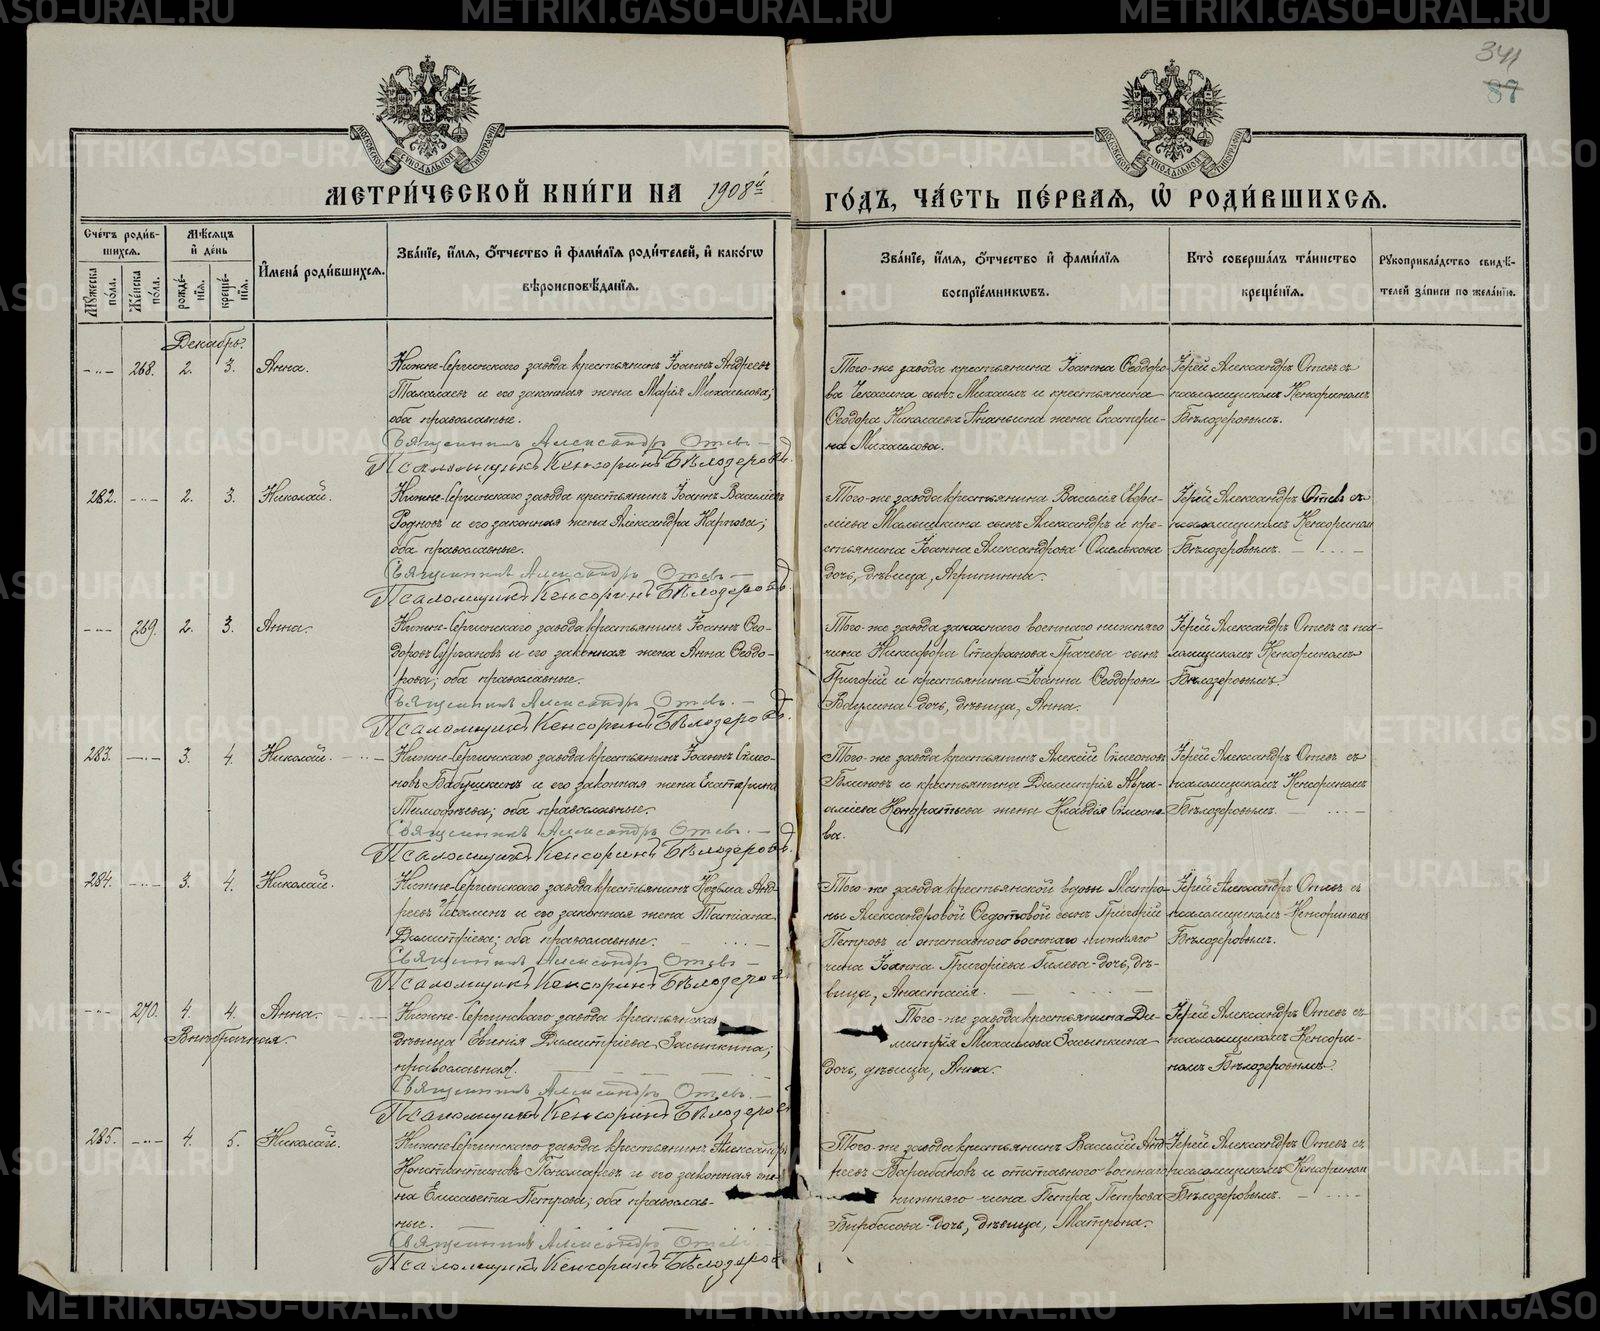 341
87
МЕТРИ́ЧЕСКОЙ КНИ́ГИ НА 1908й ГО́ДЪ, ЧА́СТЬ ПЕ́РВАЯ, Ѡ РОДИ́ВШИХСЯ.
Сче́тъ роди́вшихся.
Му́жеска по́ла.
Же́нска по́ла.
Мѣ́сяцъ и де́нь
рожде́нія.
креще́нія.
И҆мена̀ роди́вшихся.
Зва́ніе, и҆́мя, ѻ҆́тчество и҆ фами́лія роди́телей, и҆ како́гѡ
вѣроисповѣ́данія.
Зва́ніе, и҆́мя, ѻ҆́тчество и҆ фами́лія
воспріе́мникѡвъ.
Кто̀ соверша́лъ та́инство
креще́нія.
Рꙋкоприкла́дство свидѣ́-
телей за́писи по жела́нію.
Декабрь.
268. 2. 3. Анна.
Нижне-Сергинскаго завода крестьянинъ Іоаннъ Андреевъ
и его законная жена Марія Михаилова;
оба православные.
Священникъ Александръ Отевъ
Псаломщикъ Кенсоринъ Бѣлозеровъ.
Того-же завода крестьянина Іоанна Ѳеодоро-
ва Чекасина сынъ Михаилъ и крестьянина
Ѳеодора Николаева Ананьина жена Екатери-
на Михаилова.
Іерей Александръ Отевъ съ
псаломщикомъ Кенсориномъ
Бѣлозеровымъ.
282. 2. 3. Николай.
Нижне-Сергинскаго завода крестьянинъ Іоаннъ Василіевъ
Родновъ и его законная жена Александра Карпова;
оба православные.
Священникъ Александръ Отевъ
Псаломщикъ Кенсоринъ Бѣлозеровъ.
Того-же завода крестьянина Василія Евѳи-
міева Малышкина сынъ Александръ и кре-
стьянина Іоанна Александрова Омелькова
дочь, дѣвица, Агрипина.
Іерей Александръ Отевъ съ
псаломщикомъ Кенсориномъ
Бѣлозеровымъ.
269. 2. 3. Анна.
Нижне-Сергинскаго завода крестьянинъ Іоаннъ Ѳео-
доровъ Сургановъ и его законная жена Анна Ѳеодо-
рова; оба православные.
Священникъ Александръ Отевъ.
Псаломщикъ Кенсоринъ Бѣлозеровъ.
Того-же завода запаснаго военнаго нижняго
чина Никифора Стефанова Грачева сынъ
Григорій и крестьянина Іоанна Ѳеодорова
Ваулина дочь, дѣвица, Анна.
Іерей Александръ Отевъ съ пса-
ломщикомъ Кенсориномъ
Бѣлозеровымъ.
283. 3. 4. Николай.
Нижне-Сергинскаго завода крестьянинъ Іоаннъ Симео-
новъ Бабушкинъ и его законная жена Екатерина
Тимофѣева; оба православные.
Священникъ Александръ Отевъ.
Псаломщикъ Кенсоринъ Бѣлозеровъ.
Того-же завода крестьянинъ Алексій Симеоновъ
Блиновъ и крестьянина Димитрія Авра-
аміева Кондратьева жена Клавдія Симеоно-
ва.
Іерей Александръ Отевъ съ
псаломщикомъ Кенсориномъ
Бѣлозеровымъ.
284. 3. 4. Николай.
Нижне-Сергинскаго завода крестьянинъ Козьма Анд-
реевъ и его законная жена Татіана
Димитріева; оба православные.
Священникъ Александръ Отевъ
Псаломщикъ Кенсоринъ Бѣлозеровъ.
Того-же завода крестьянской вдовы Матро-
ны Александровой Ѳедотовой сынъ Григорій
Петровъ и отставнаго военнаго нижняго
чина Іоанна Григоріева Гилева дочь, дѣ-
вица, Анастасія.
Іерей Александръ Отевъ съ
псаломщикомъ Кенсориномъ
Бѣлозеровымъ.
270. 4. 4. Анна.
Внѣбрачная.
Нижне-Сергинскаго завода крестьянская
дѣвица Евгенія Димитріева Засыпкина;
православная.
Священникъ Александръ Отевъ.
Псаломщикъ Кенсоринъ Бѣлозеровъ
Того-же завода крестьянина Ди-
митрія Михаилова Засыпкина
дочь, дѣвица, Анна.
Іерей Александръ Отевъ съ
псаломщикомъ Кенсори-
номъ Бѣлозеровымъ.
285. 4. 5. Николай.
Нижне-Сергинскаго завода крестьянинъ Александръ
Константиновъ Пономаревъ и его законная же-
на Елисавета Петрова; оба православ-
ные.
Священникъ Александръ Отевъ
Псаломщикъ Кенсоринъ Бѣлозеровъ
Того-же завода крестьянинъ Василій Анд-
реевъ Барабановъ и отставнаго военнаго
нижняго чина Петра Петрова
дочь, дѣвица, Матрона.
Іерей Александръ Отевъ съ
псаломщикомъ Кенсориномъ
Бѣлозеровымъ.
METRIKI.GASO-URAL.RU